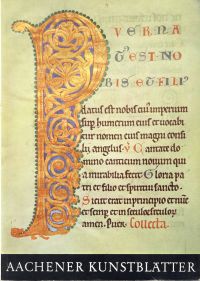 P VER NA
T EST NO
BIS ET FILI
datus est nobis cui(us) imperium
sup(er) humerum eius et vocabi
tur nomen eius magni consi
lii angelus V Cantate do
mino canticum novum qui
a mirabilia fecit Gloria pa
tri et filio et spiritui sancto
Sicut erat in principio et nunc
et semp(er) et in secula seculoru(m)
amen. Puer. Collecta.
AACHENER KUNSTBLÄTTER